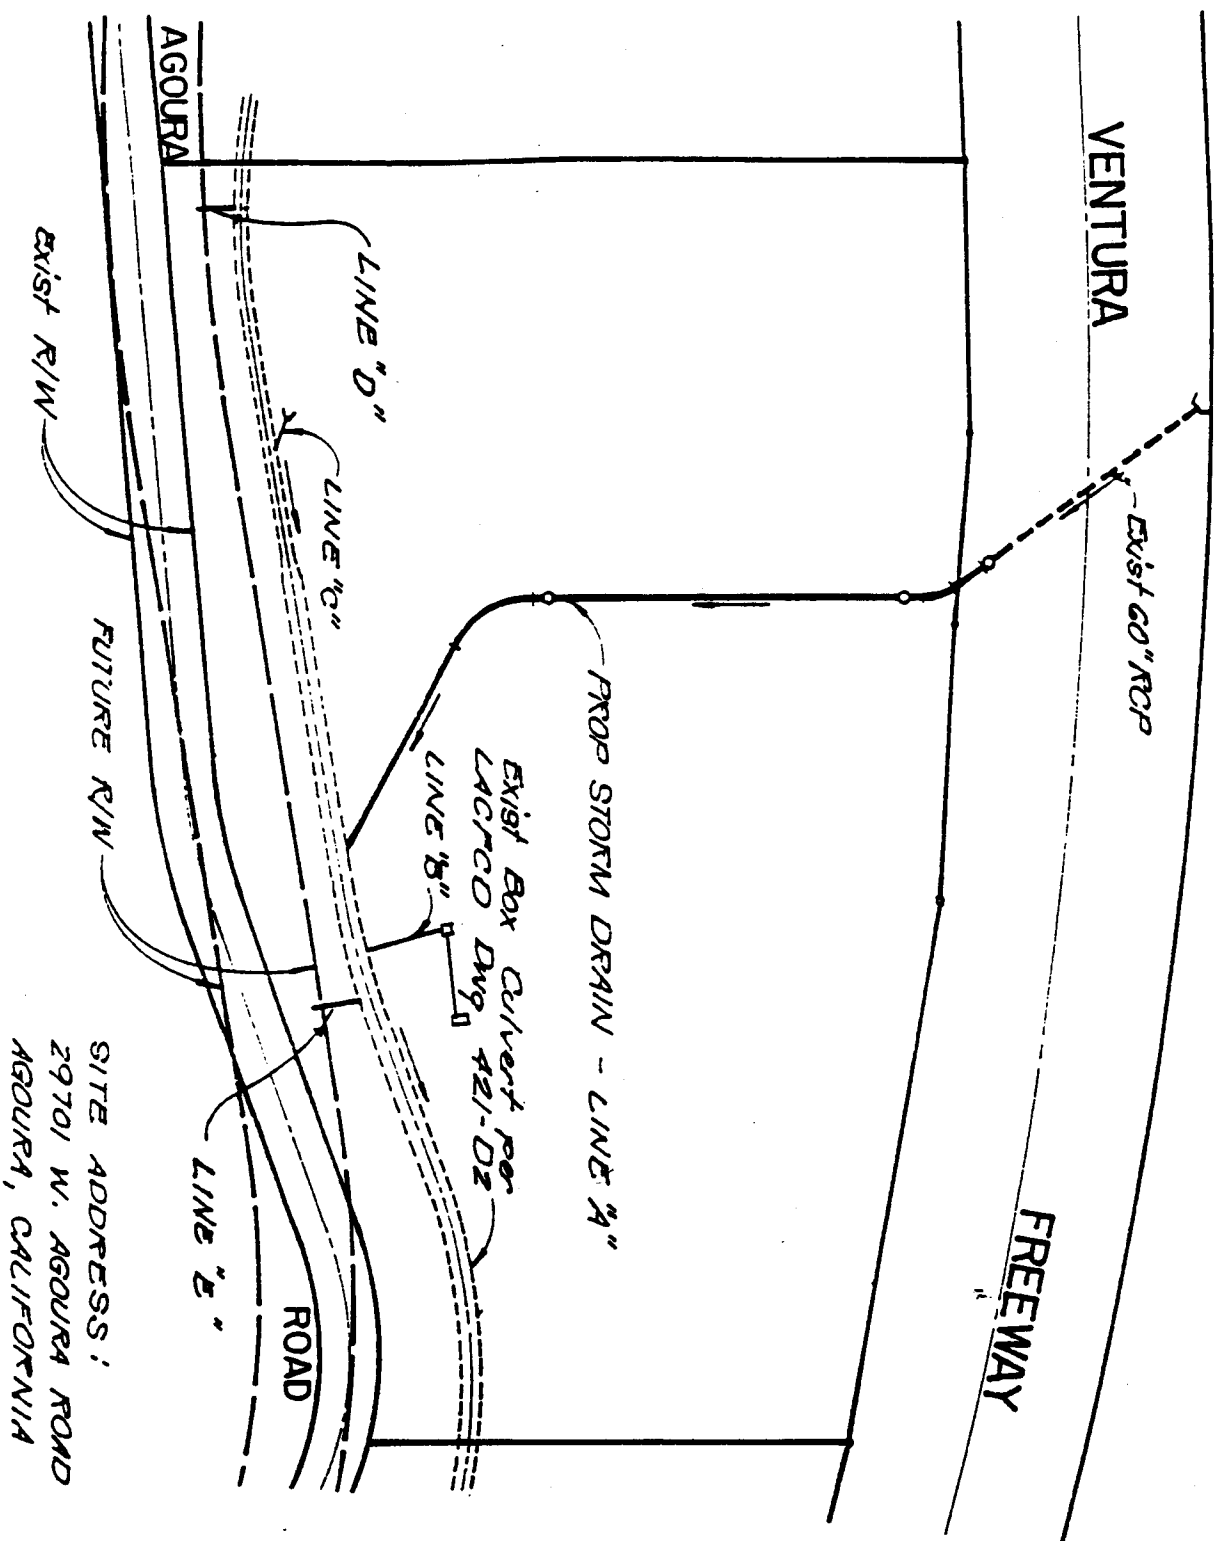 VENTURA
FREEWAY
Exist 60" RCP
PROP STORM DRAIN - LINE "A"
Exist Box Culvert per
LACFCD Dwg 421-D2
LINE "B"
LINE "D"
LINE "C"
AGOURA
ROAD
Exist R/W
FUTURE R/W
LINE "E"
SITE ADDRESS:
29701 W. AGOURA ROAD
AGOURA, CALIFORNIA